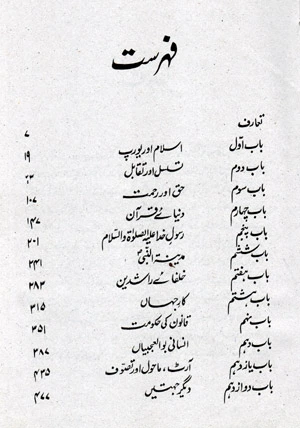 فہرست
تعارف ۷
باب اوّل اسلام اور یورپ ۱۹
باب دوم تسلسل اور تقابل
باب سوم حق اور رحمت ۱۰۷
باب چہارم دنیائے قرآن ۱۴۷
باب پنجم رسولِ خدا علیہ الصلوٰۃ والسلام ۲۰۱
باب ششم مدینۃ النبیؐ ۲۴۱
باب ہفتم خلفائے راشدین ۲۸۳
باب ہشتم کارِ جہاں ۳۱۵
باب نہم قانون کی حکومت ۳۵۱
باب دہم انسانی بوالعجبیاں ۳۸۷
باب یازدہم آرٹ، ماحول اور تصوّف ۴۳۵
باب دوازدہم دیگر جہتیں ۴۷۷